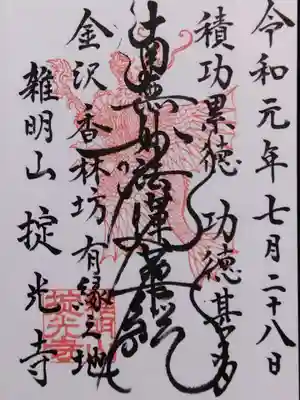 令和元年七月二十八日
積功累徳 功徳甚多
南無妙法蓮華経
金沢香林坊有縁之地
雑明山 掟光寺